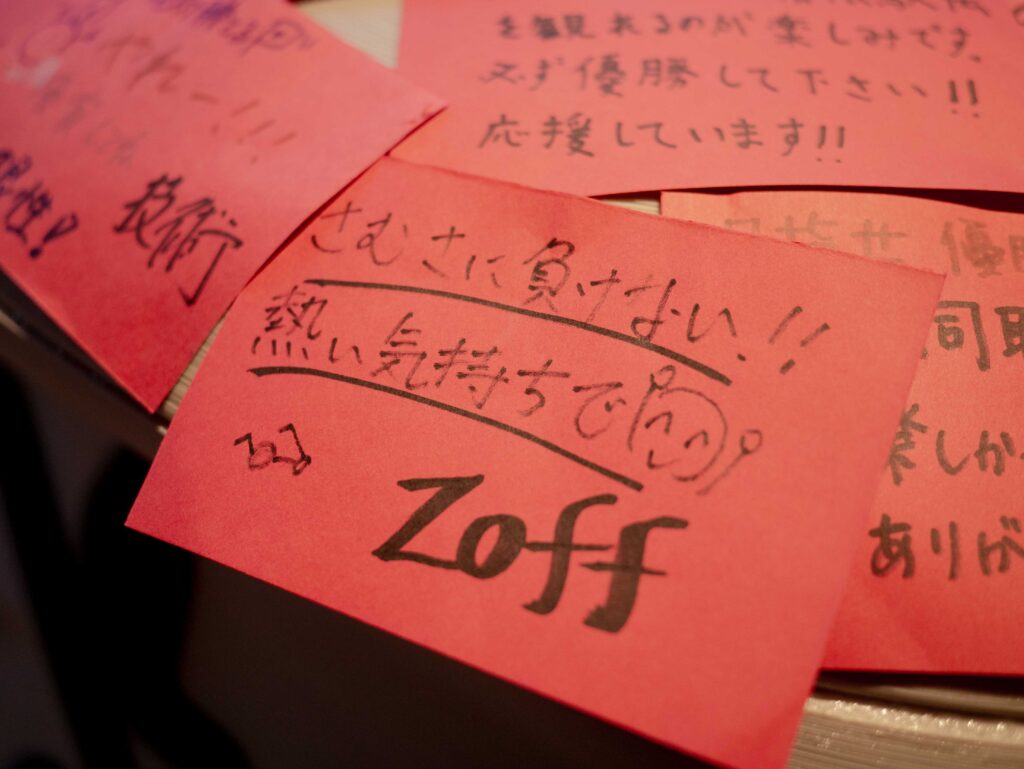 やれー!!!
性!
技術
を観れるのが楽しみです。
必ず優勝して下さい!!
応援しています!!
さむさに負けない!!
熱い気持ちで
Zoff
優勝
司
楽しか
ありが